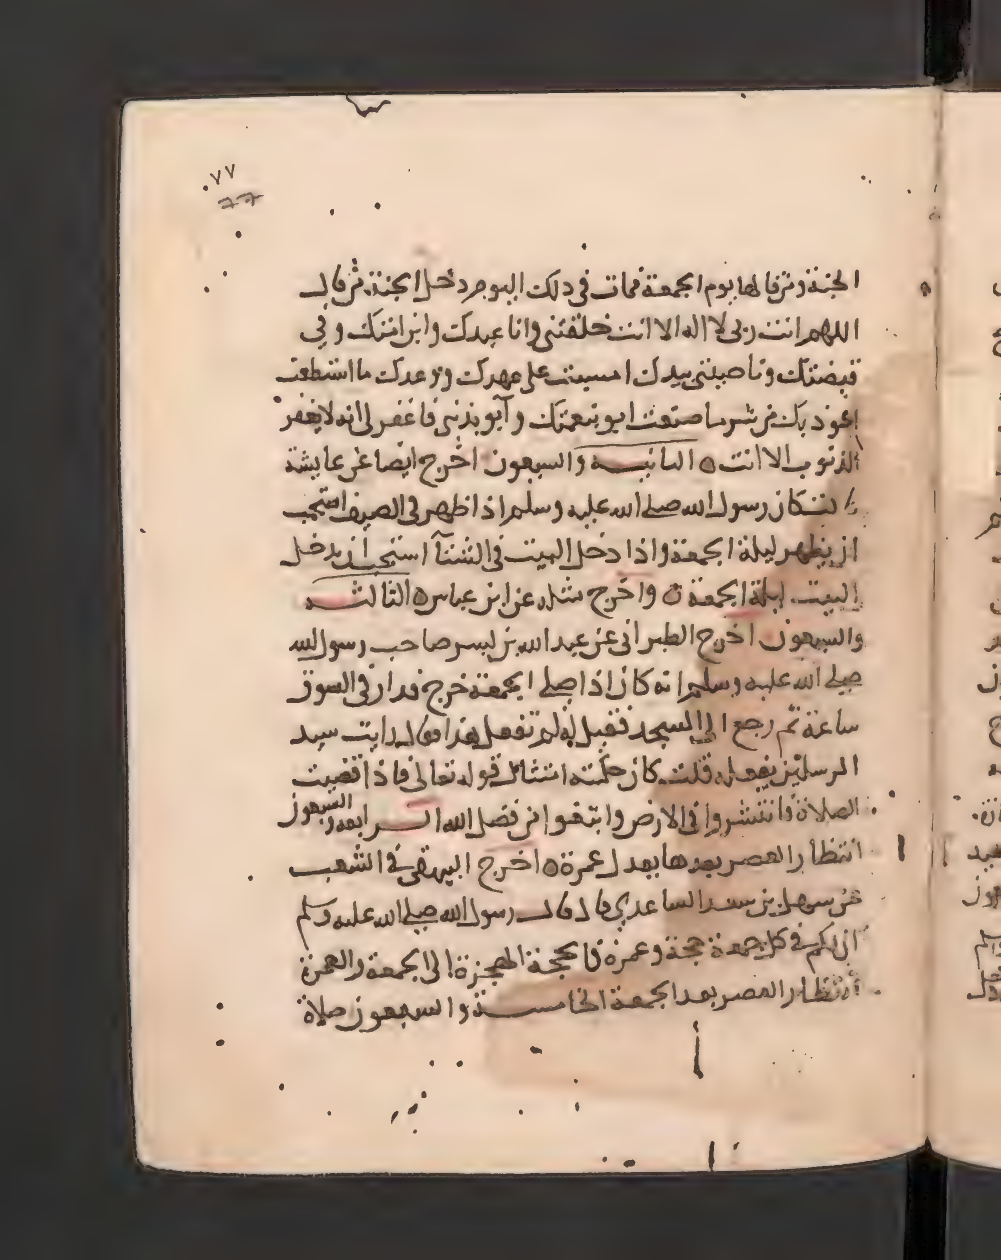 ٧٧
77
الجنة ومن قالها يوم الجمعة فمات في ذلك اليوم دخل الجنة من قال
اللهم انت ربي لا اله الا انت خلقتني وانا عبدك وابن امتك وفي
قبضتك وناصيتي بيدك امسيت على عهدك ووعدك ما استطعت
اعوذ بك من شر ما صنعت ابو بنعمتك وآبو بذنبي فاغفر لي انه لا يغفر
الذنوب الا انت الثانيـة والسبعون اخرج ايضا عن عايشة
كان رسول الله صلى الله عليه وسلم اذا ظهر في الصيف استحب
ان يظهر ليلة الجمعة واذا دخل البيت في الشتآ استحب ان يدخل
البيت ليلة الجمعة واخرج مثله عن ابن عباس الثالثـة
والسبعون اخرج الطبراني عن عبد الله بن بسر صاحب رسول الله
صلى الله عليه وسلم انه كان اذا صلى الجمعة خرج فدار في السوق
ساعة ثم رجع الى المسجد فقيل له لم تفعل هذا قال رايت سيد
المرسلين يفعله قلت كان حكمته امتثال قوله تعالى فاذا قضيت
الصلاة فانتشروا في الارض وابتغوا من فضل الله الـرابعة والسبعون
انتظار العصر بعدها يعدل عمرة اخرج البيهقي في الشعب
عن سهل بن سعد الساعدي قال قال رسول الله صلى الله عليه وسلم
ان لكم في كل جمعة حجة وعمرة فالحجة الهجرة الى الجمعة والعمرة
انتظار العصر بعد الجمعة الخامسـة والسبعون صلاة